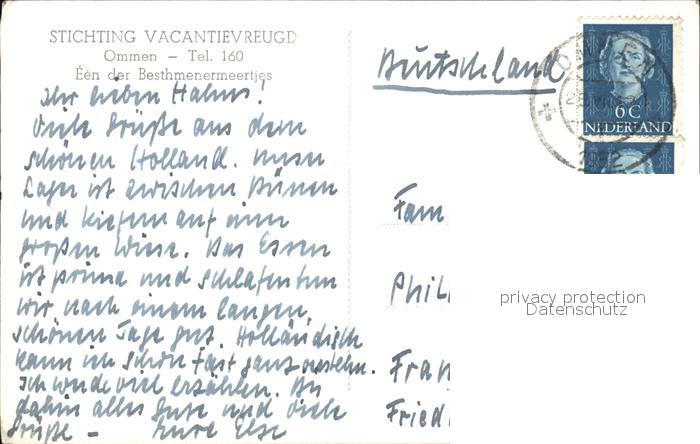 STICHTING VACANTIEVREUGD
Ommen – Tel. 160
Één der Besthmenermeertjes
Ihr lieben Hahns!
Viele Grüße aus dem
schönen Holland. Unser
Lager ist zwischen Dünen
und Kiefern auf einer
großen Wiese. Das Essen
ist prima und schlafen tun
wir nach einem langen,
schönen Tage gut. Holländisch
kann ich schon fast ganz verstehn.
Ich werde viel erzählen. Bis
dahin alles Gute und viele
Grüße – Eure Else
Deutschland
OMMEN
6 C
NEDERLAND
Fam
Phil
Fran
Fried
privacy protection
Datenschutz